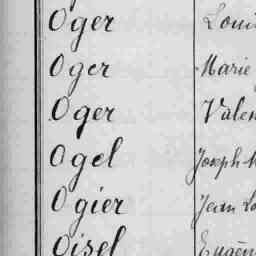 Oger Loui
Oger Marie
Oger Valen
Ogel Joseph M
Ogier Jean Lo
Oisel Eugèn